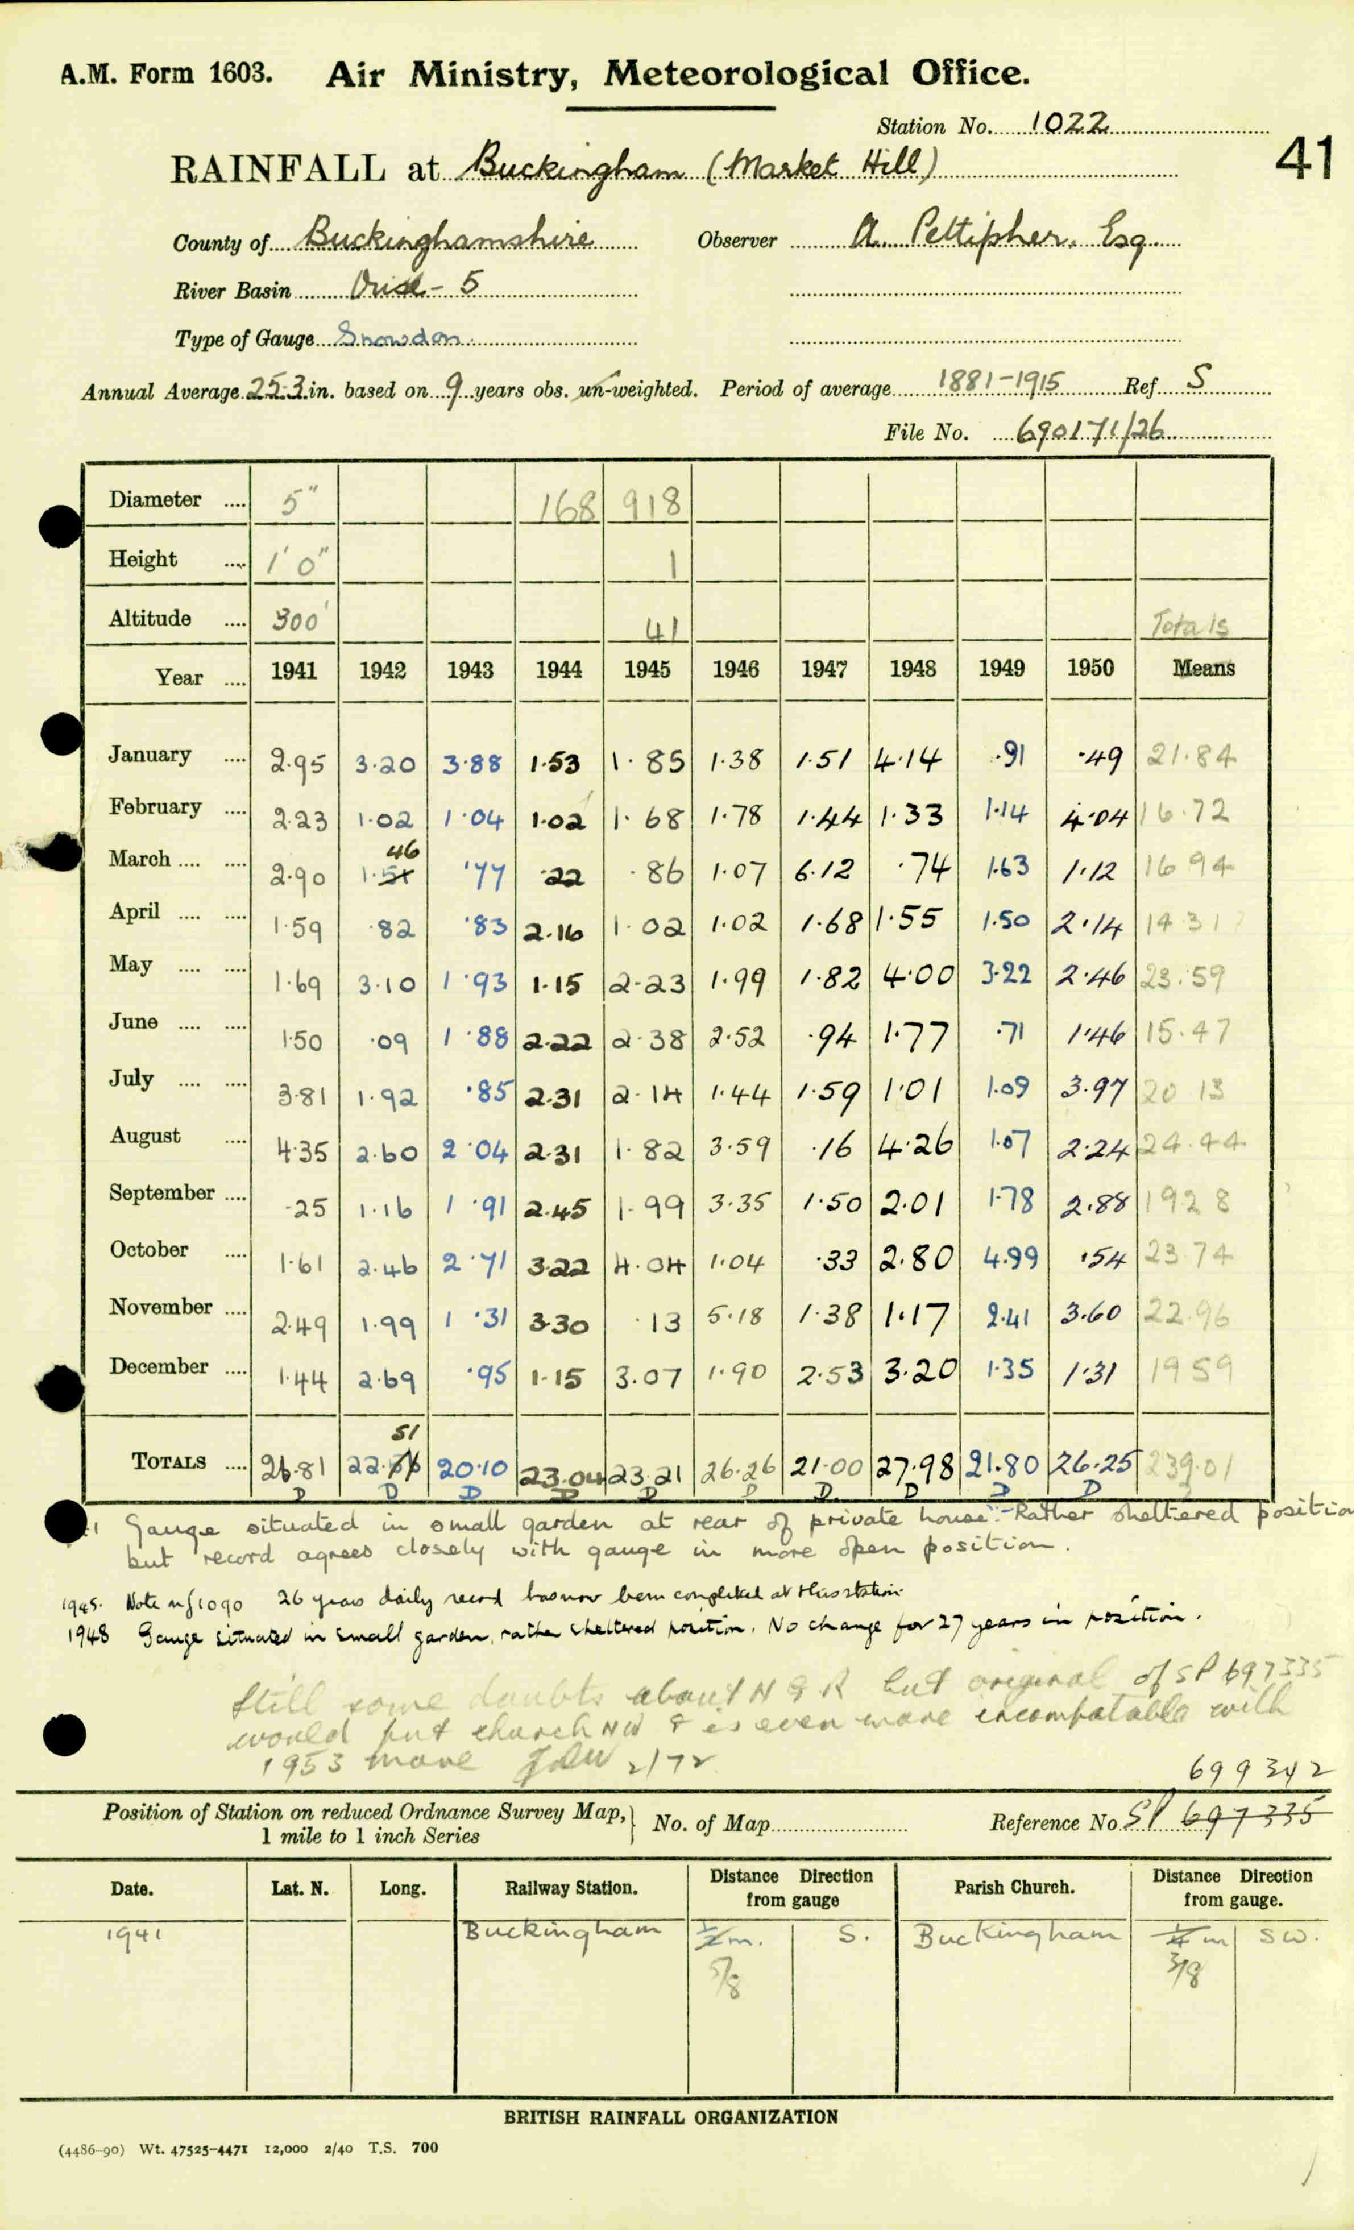 A.M. Form 1603. Air Ministry, Meteorological Office.
Station No. 1022
41
RAINFALL at Buckingham (Market Hill)
County of Buckinghamshire Observer A. Pettipher. Esq.
River Basin Ouse - 5
Type of Gauge Snowdon.
Annual Average 25.3 in. based on 9 years obs. un-weighted. Period of average 1881-1915 Ref. S
File No. 690171/26
Diameter .... 5" 168 918
Height .... 1' 0" 1
Altitude .... 300' 41 Totals
Year .... 1941 1942 1943 1944 1945 1946 1947 1948 1949 1950 Means
January .... 2.95 3.20 3.88 1.53 1.85 1.38 1.51 4.14 .91 .49 21.84
February .... 2.23 1.02 1.04 1.02 1.68 1.78 1.44 1.33 1.14 4.04 16.72
46
March .... .... 2.90 1.51 .77 .22 .86 1.07 6.12 .74 1.63 1.12 16 94
April .... .... 1.59 .82 .83 2.16 1.02 1.02 1.68 1.55 1.50 2.14 14 31
May .... .... 1.69 3.10 1.93 1.15 2.23 1.99 1.82 4.00 3.22 2.46 23.59
June .... .... 1.50 .09 1.88 2.22 2.38 2.52 .94 1.77 .71 1.46 15.47
July .... .... 3.81 1.92 .85 2.31 2.14 1.44 1.59 1.01 1.09 3.97 20 13
August .... 4.35 2.60 2.04 2.31 1.82 3.59 .16 4.26 1.07 2.24 24.44
September .... .25 1.16 1.91 2.45 1.99 3.35 1.50 2.01 1.78 2.88 192 8
October .... 1.61 2.46 2.71 3.22 4.04 1.04 .33 2.80 4.99 .54 23.74
November .... 2.49 1.99 1.31 3.30 .13 5.18 1.38 1.17 2.41 3.60 22.96
December .... 1.44 2.69 .95 1.15 3.07 1.90 2.53 3.20 1.35 1.31 19 59
51
TOTALS .... 26.81 22.56 20.10 23.04 23.21 26.26 21.00 27.98 21.80 26.25 239.01
D D D D D D D. D D D
Gauge situated in small garden at rear of private house. - Rather sheltered position
but record agrees closely with gauge in more open position.
1945. Note 26 years daily record has now been completed at this station
1948 Gauge situated in small garden, rather sheltered position. No change for 27 years in position.
Still some doubts about NGR but original of SP 697335
would put church NW & is even more incompatable with
1953 move 2/72
699342
Position of Station on reduced Ordnance Survey Map, 1 mile to 1 inch Series No. of Map Reference No. SP 697335
Date. Lat. N. Long. Railway Station. Distance Direction from gauge Parish Church. Distance Direction from gauge.
1941 Buckingham 1/2 m. S. Buckingham 1/4 m SW.
5/8 3/8
BRITISH RAINFALL ORGANIZATION
(4486-90) Wt. 47525-4471 12,000 2/40 T.S. 700